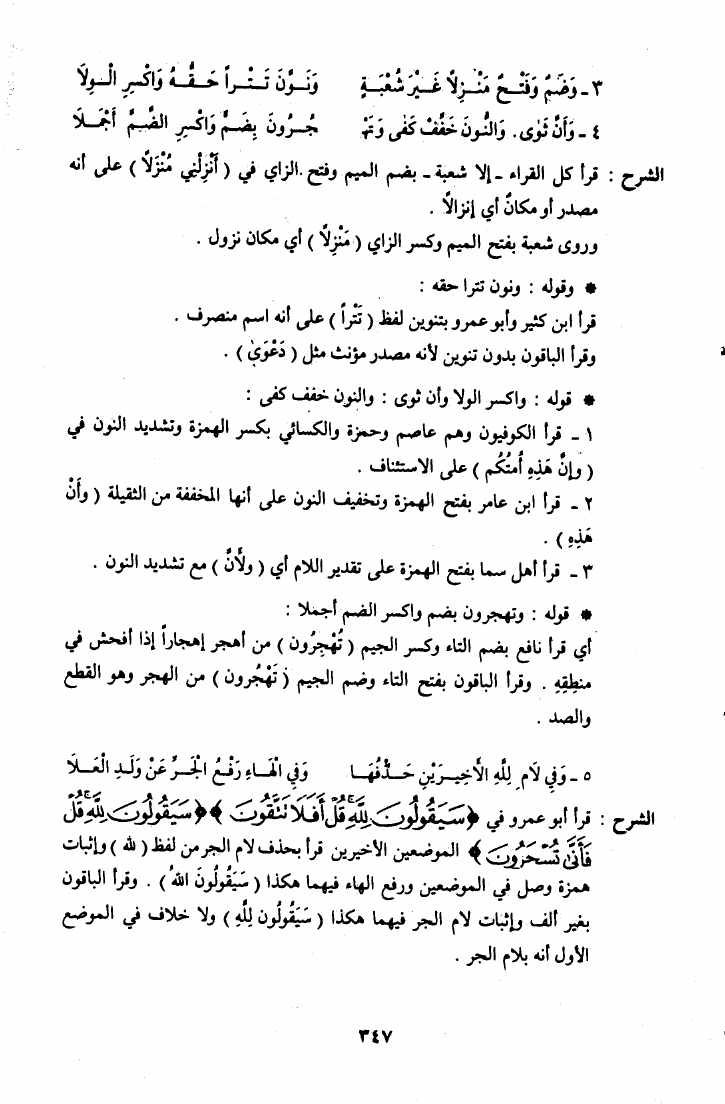 ٣ - وَضَمٌّ وَفَتْحٌ مَنْزِلاً غَيْرَ شُعْبَةٍ وَنَوَّنَ تَتْراً حَقُّهُ وَاكْسِرِ الْوِلَا
٤ - وَأَنَّ ثَوٰى. وَالنُّونَ خَفِّفْ كَفٰى وَتَهْ جُرُونَ بِضَمٍّ وَاكْسِرِ الضَّمَّ أَجْمَلَا
الشرح : قرأ كل القراء - إلا شعبة - بضم الميم وفتح الزاي في ( أَنْزِلْنِي مُنْزَلاً ) على أنه
مصدر أو مكانٌ أي إنزالاً .
وروى شعبة بفتح الميم وكسر الزاي ( مَنْزِلاً ) أي مكان نزول .
* وقوله : ونون تترا حقه :
قرأ ابن كثير وأبو عمرو بتنوين لفظ ( تَتْراً ) على أنه اسم منصرف .
وقرأ الباقون بدون تنوين لأنه مصدر مؤنث مثل ( دَعْوَىٰ ) .
* قوله : واكسر الولا وأن ثوى : والنون خفف كفى :
١ - قرأ الكوفيون وهم عاصم وحمزة والكسائي بكسر الهمزة وتشديد النون في
( وإِنَّ هَذِهِ أُمتُكُم ) على الاستئناف .
٢ - قرأ ابن عامر بفتح الهمزة وتخفيف النون على أنها المخففة من الثقيلة ( وأَنْ
هَذِهِ ) .
٣ - قرأ أهل سما بفتح الهمزة على تقدير اللام أي ( ولأَنَّ ) مع تشديد النون .
* قوله : وتهجرون بضم واكسر الضم أجملا :
أي قرأ نافع بضم التاء وكسر الجيم ( تُهْجِرُون ) من أهجر إهجاراً إذا أفحش في
منطِقِهِ . وقرأ الباقون بفتح التاء وضم الجيم ( تَهْجُرون ) من الهجر وهو القطع
والصد .
٥ - وَفِي لَامِ لِلَّهِ الأَخِيرَيْنِ حَذْفُهَا وَفِي الْهَاءِ رَفْعُ الْجَرِّ عَنْ وَلَدِ الْعَلَا
الشرح : قرأ أبو عمرو في ﴿ سَيَقُولُونَ لِلَّهِ قُلْ أَفَلَا تَتَّقُونَ ﴾ ﴿ سَيَقُولُونَ لِلَّهِ قُلْ
فَأَنَّى تُسْحَرُونَ ﴾ الموضعين الأخيرين قرأ بحذف لام الجر من لفظ ( لله ) وإثبات
همزة وصل في الموضعين ورفع الهاء فيهما هكذا ( سَيَقُولُونَ اللهُ ) . وقرأ الباقون
بغير ألف وإثبات لام الجر فيهما هكذا ( سَيَقُولُون لِلَّهِ ) ولا خلاف في الموضع
الأول أنه بلام الجر .
٣٤٧